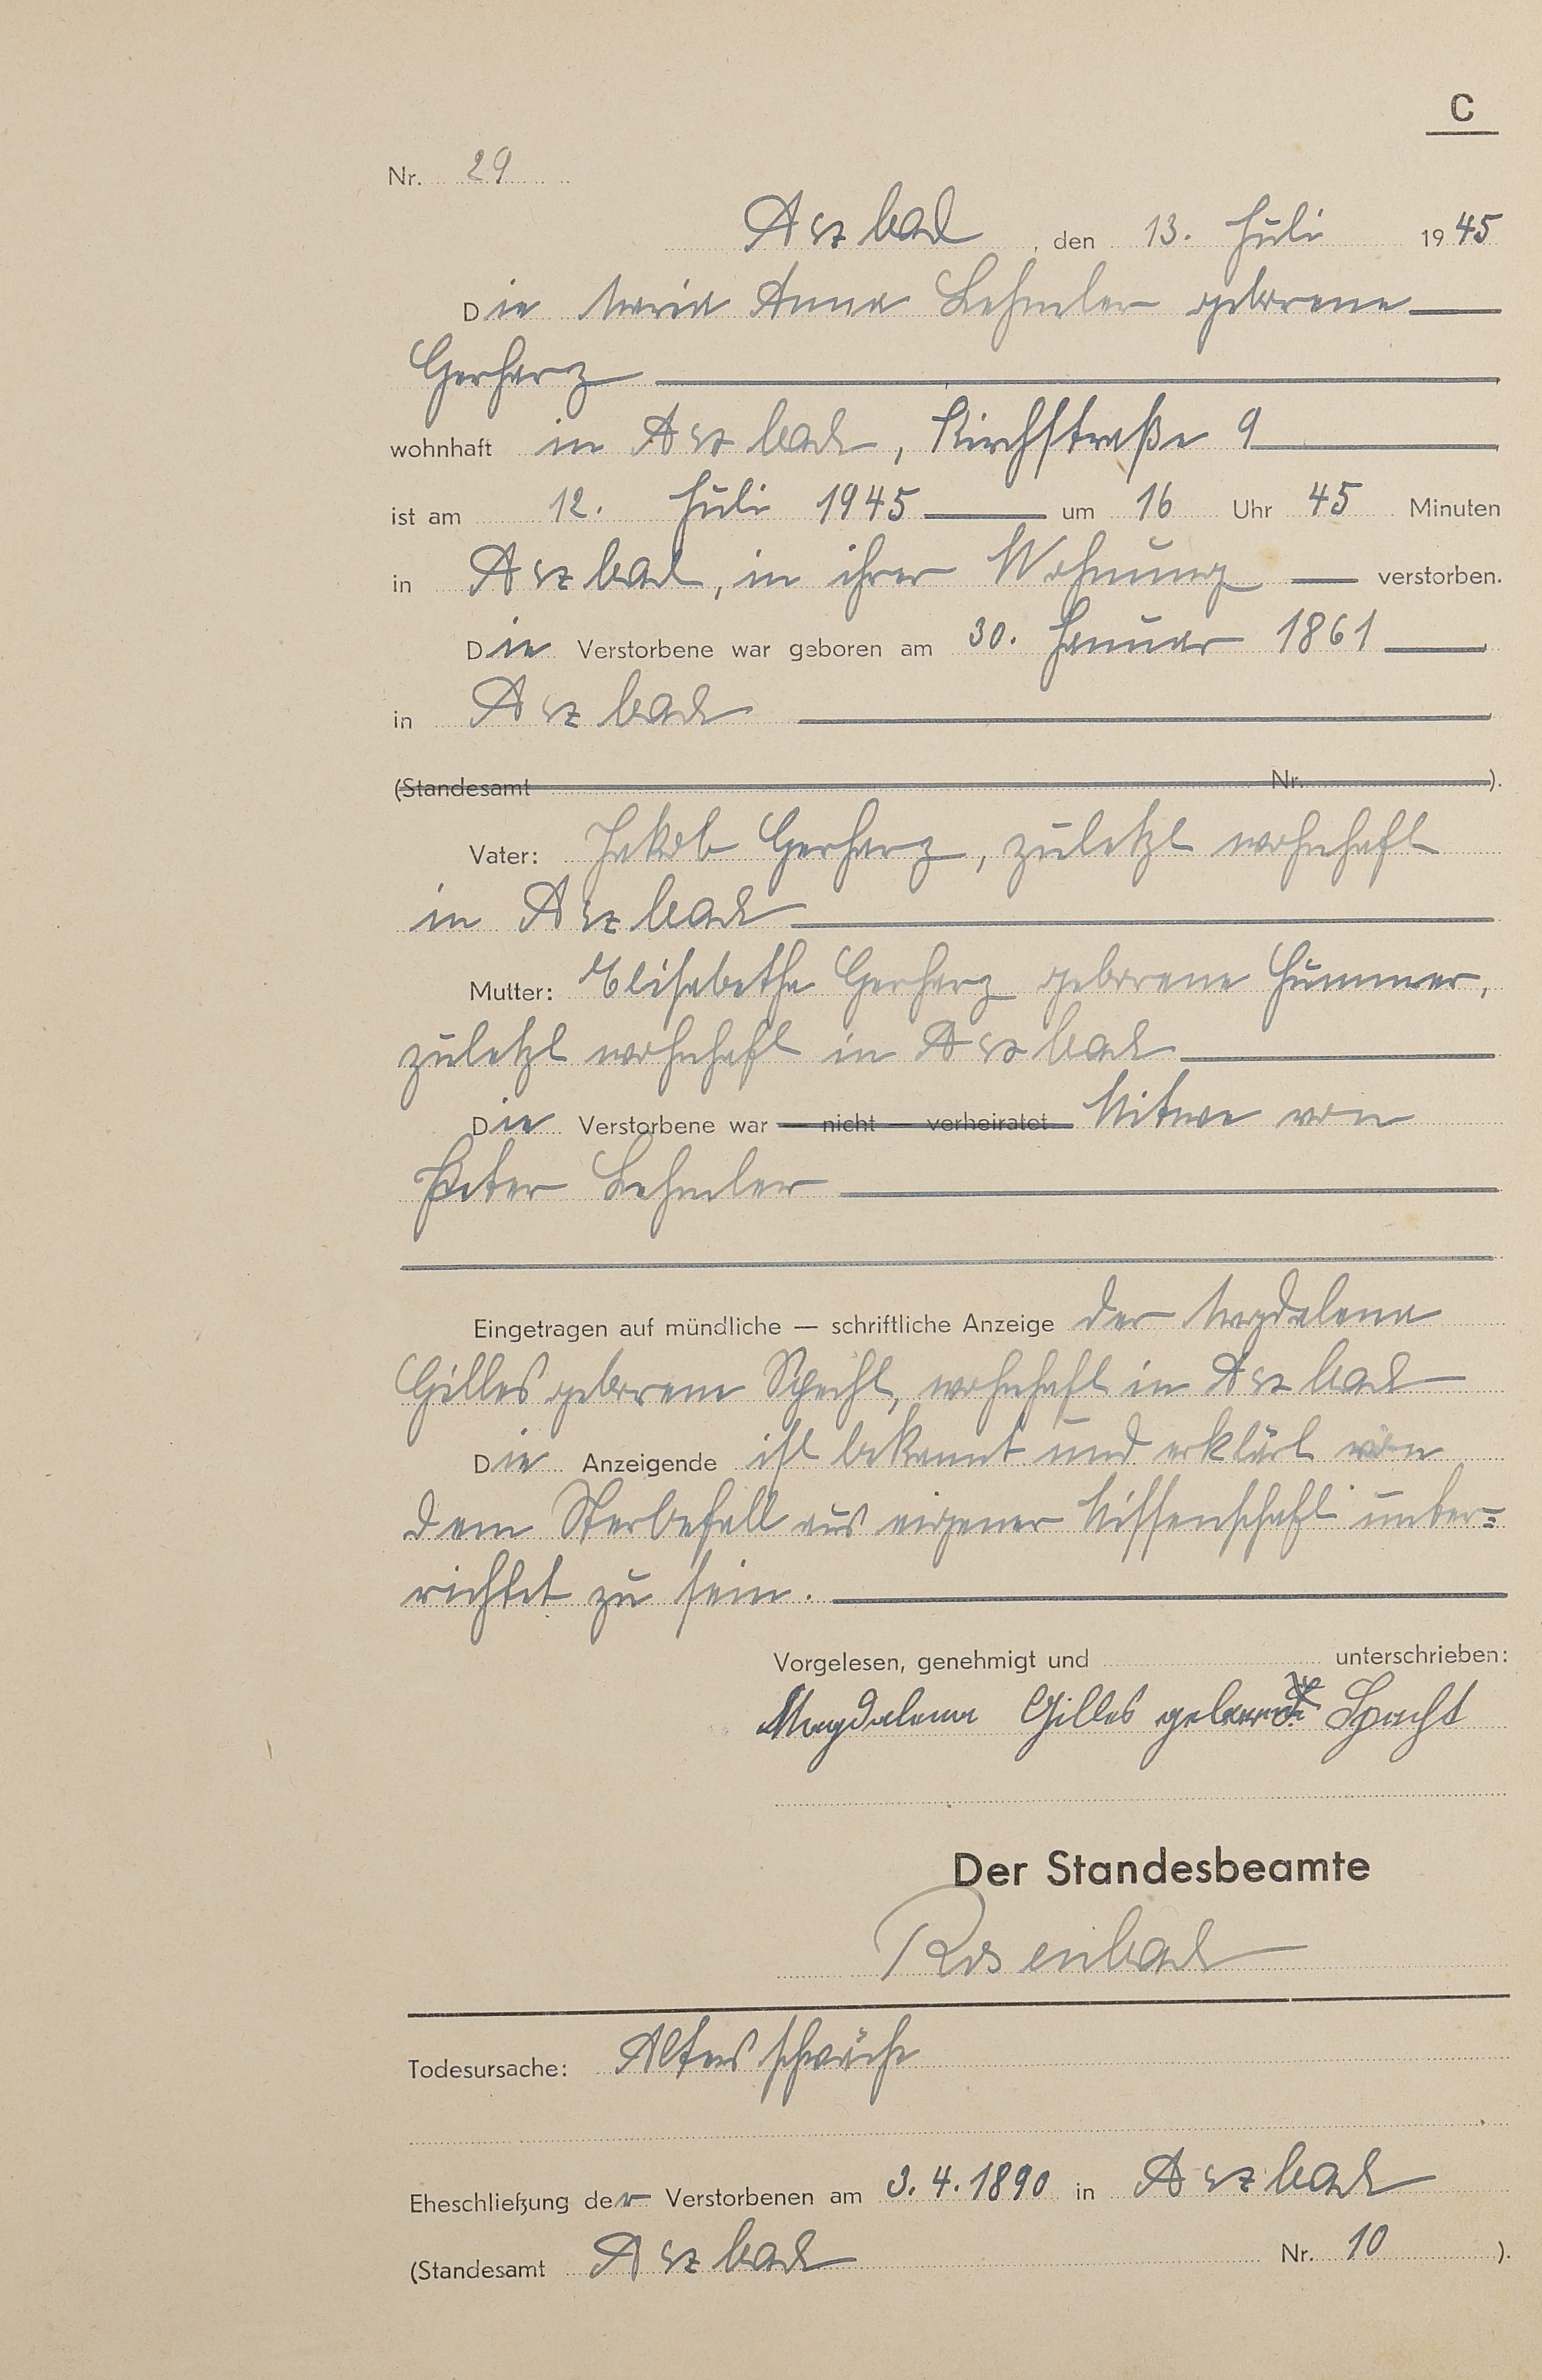 C
Nr. 29
Arzbach, den 13. Juli 1945
Die Maria Anna Lehmler geborene
Gerharz
wohnhaft in Arzbach, Kirchstraße 9
ist am 12. Juli 1945 um 16 Uhr 45 Minuten
in Arzbach, in ihrer Wohnung verstorben.
Die Verstorbene war geboren am 30. Januar 1861
in Arzbach
(Standesamt Nr. ).
Vater: Jakob Gerharz, zuletzt wohnhaft
in Arzbach
Mutter: Elisabetha Gerharz geborene Hümmer,
zuletzt wohnhaft in Arzbach
Die Verstorbene war — nicht — verheiratet Witwe von
Peter Lehmler
Eingetragen auf mündliche — schriftliche Anzeige der Magdalena
Gilles geborene Specht, wohnhaft in Arzbach
Die Anzeigende ist bekannt und erklärt von
dem Sterbefall aus eigener Wissenschaft unter=
richtet zu sein.
Vorgelesen, genehmigt und unterschrieben:
Magdalena Gilles geborene Specht
Der Standesbeamte
Rosenbach
Todesursache: Altersschwäche
Eheschließung der Verstorbenen am 3.4.1890 in Arzbach
(Standesamt Arzbach Nr. 10 ).